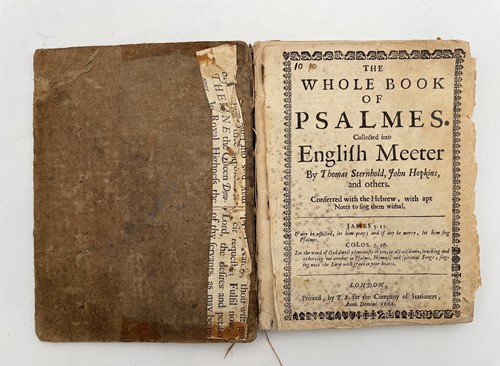 10 10
THE
WHOLE BOOK
OF
PSALMES.
Collected into
Engliſh Meeter
By Thomas Sternhold, John Hopkins,
and others.
Conferred with the Hebrew, with apt
Notes to ſing them withal.
JAMES 5. 13.
If any be afflicted, let him pray; and if any be merry, let him ſing
Pſalmes.
COLOS. 3. 16.
Let the word of God dwell plenteouſly in you, in all wiſdome, teaching and
exhorting one another in Pſalms, Hymnes, and ſpiritual Songs, ſing-
ing unto the Lord with grace in your hearts.
LONDON
Printed, by T. R. for the Company of Stationers,
Anno Domini 1661.
Lord, the deſires and peti
of thy ſervants, as may be
requeſts; Fulfil now
THERINE the Queen Dow
Royal Highneſs the